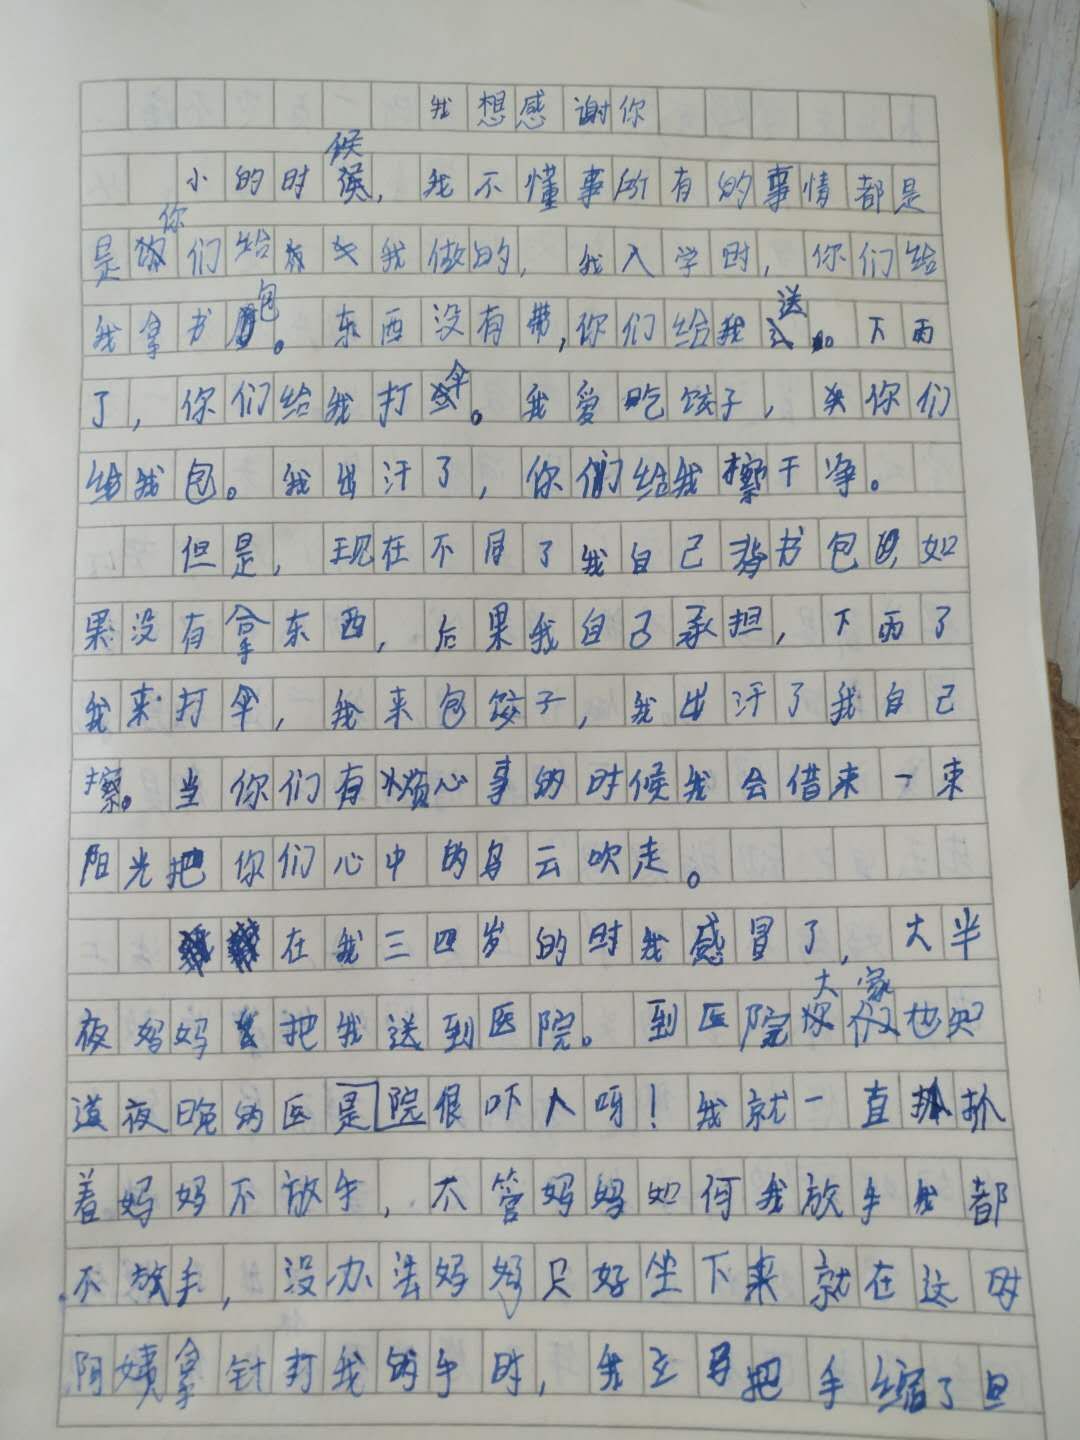 我想感谢你
小的时候，我不懂事所有的事情都是
是你们给我做的，我入学时，你们给
我拿书包。东西没有带，你们给我送。下雨
了，你们给我打伞。我爱吃饺子，你们
给我包。我出汗了，你们给我擦干净。
但是，现在不用了我自己背书包，如
果没有拿东西，后果我自己承担，下雨了
我来打伞，我来包饺子，我出汗了我自己
擦。当你们有烦心事的时候我会借来一束
阳光把你们心中的乌云吹走。
在我三四岁的时我感冒了，大半
夜妈妈把我送到医院。到医院大家也知
道夜晚的医是院很吓人呀！我就一直抓
着妈妈不放手，不管妈妈如何我放手我都
不放手，没办法妈妈只好坐下来就在这时
阿姨拿针打我的手时，我立马把手缩了回